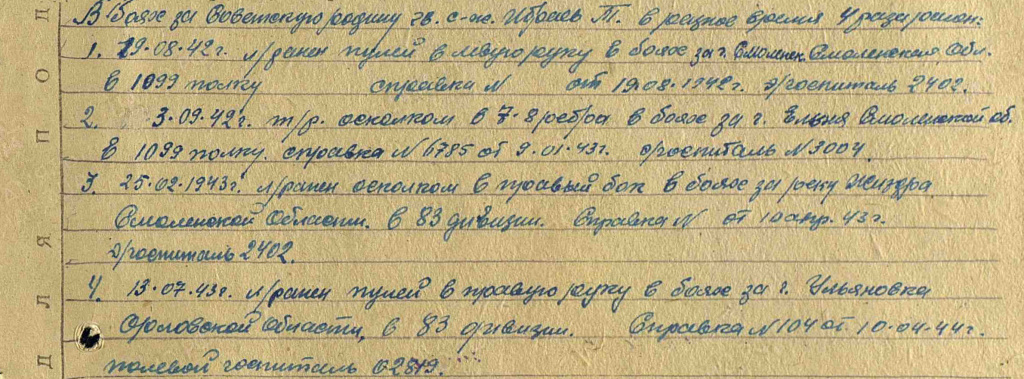 В боях за Советскую родину гв. с-ж. Ибраев Т. в разное время 4 раза ранен:
1. 19.08.42г. л/ранен пулей в левую руку в боях за г. Смоленск Смоленской Обл.
в 1099 полку справка N от 19.08.1942г. э/госпиталь 2402.
2. 3.09.42г. т/р. осколком в 7-8 ребра в боях за г. Ельня Смоленской об.
в 1099 полку. справка N 6785 от 9.01.43г. э/госпиталь N 3004.
3. 25.02.1943г. л/ранен осколком в правый бок в боях за реку Жиздра
Смоленской Области. в 83 дивизии. Справка N от 10 апр. 43г.
э/госпиталь 2402.
4. 13.07.43г. л/ранен пулей в правую руку в боях за г. Ульяновка
Орловской Области, в 83 дивизии. Справка N 104 от 10.04.44г.
полевой госпиталь 02819.
Д Л Я П О Д